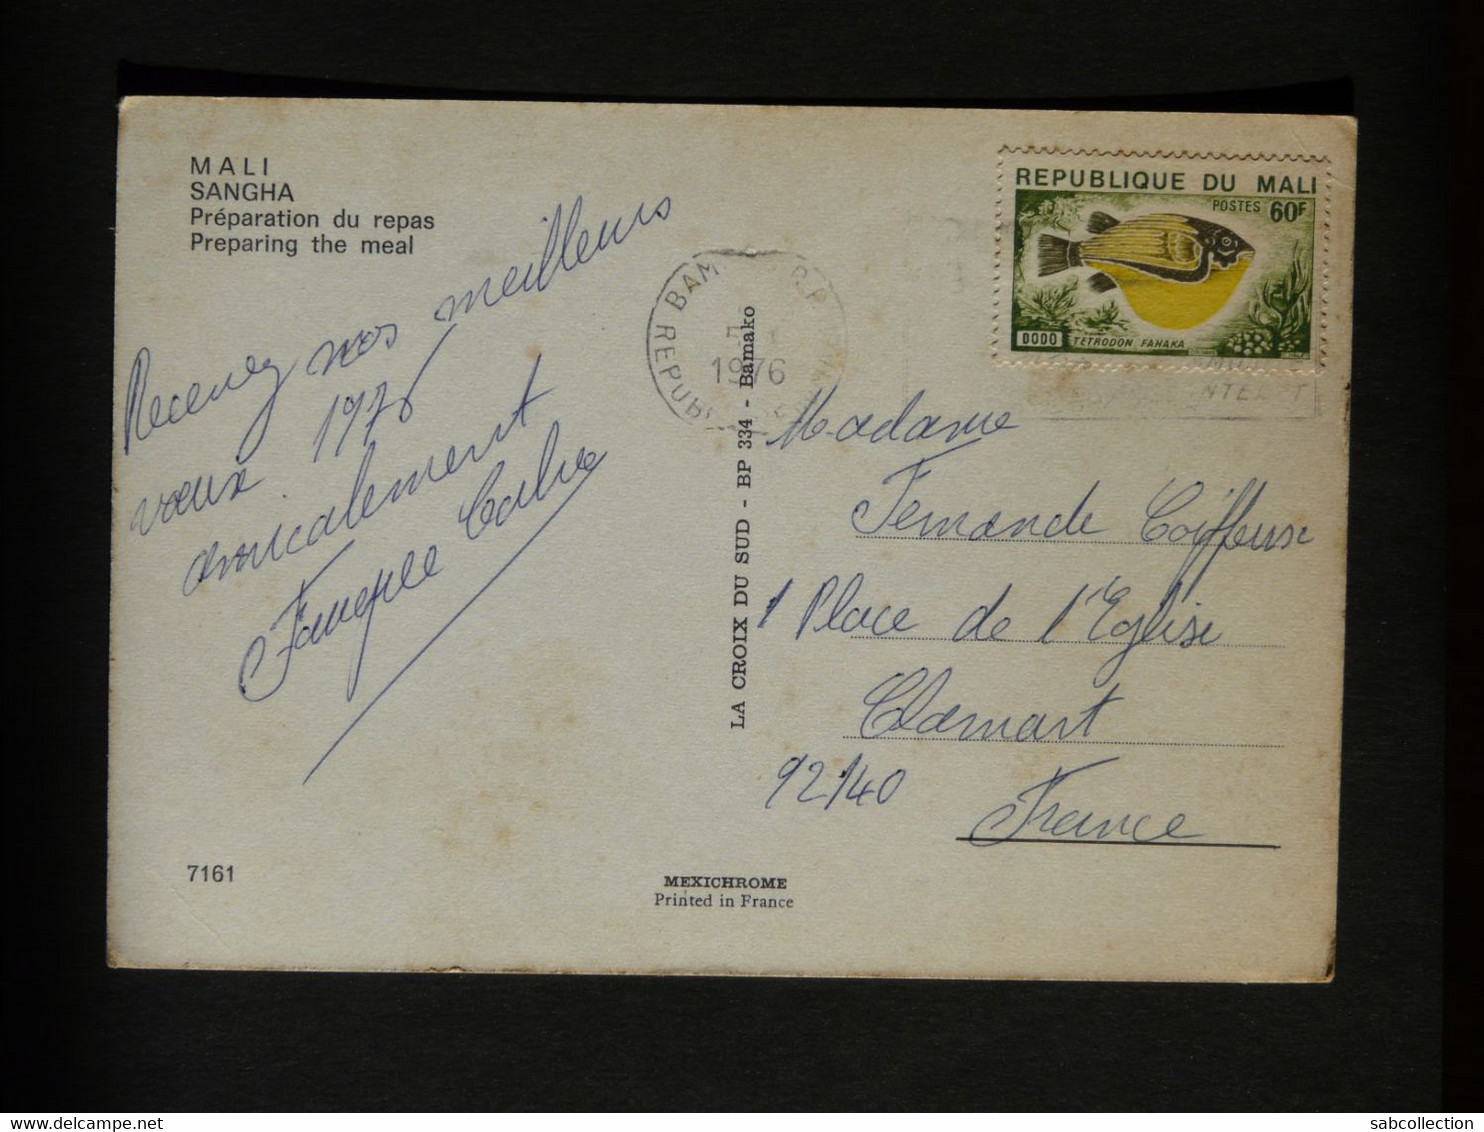 MALI
SANGHA
Préparation du repas
Preparing the meal
Recevez nos meilleurs
vœux 1976
amicalement
Calve
7161
LA CROIX DU SUD - BP 334 - Bamako
MEXICHROME
Printed in France
REPUBLIQUE DU MALI
POSTES 60F
DODO
TETRODON FAHAKA
BAM
R.P
1976
REPUB
Madame
Fernande Coiffeuse
1 Place de l'Eglise
Clamart
92140
France
delcampe.net
sabcollection